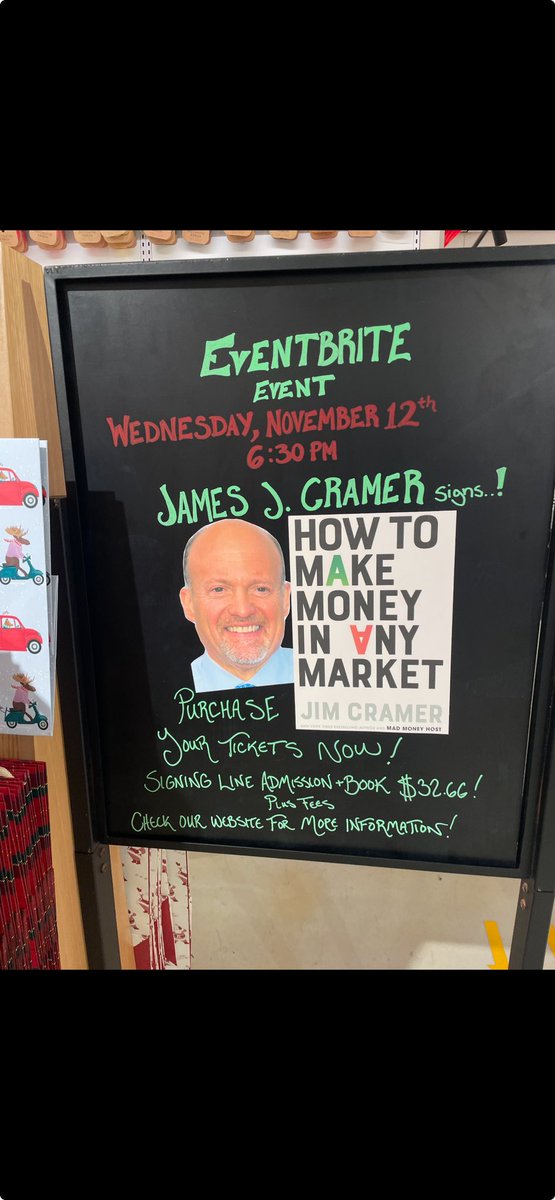 EVENTBRITE
EVENT
WEDNESDAY, NOVEMBER 12th
6:30 PM
JAMES J. CRAMER signs..!
HOW TO
MAKE
MONEY
IN ANY
MARKET
JIM CRAMER
NEW YORK TIMES BESTSELLING AUTHOR AND MAD MONEY HOST
PURCHASE
YOUR TICKETS NOW!
SIGNING LINE ADMISSION + BOOK $32.66!
PLUS FEES
CHECK OUR WEBSITE FOR MORE INFORMATION!